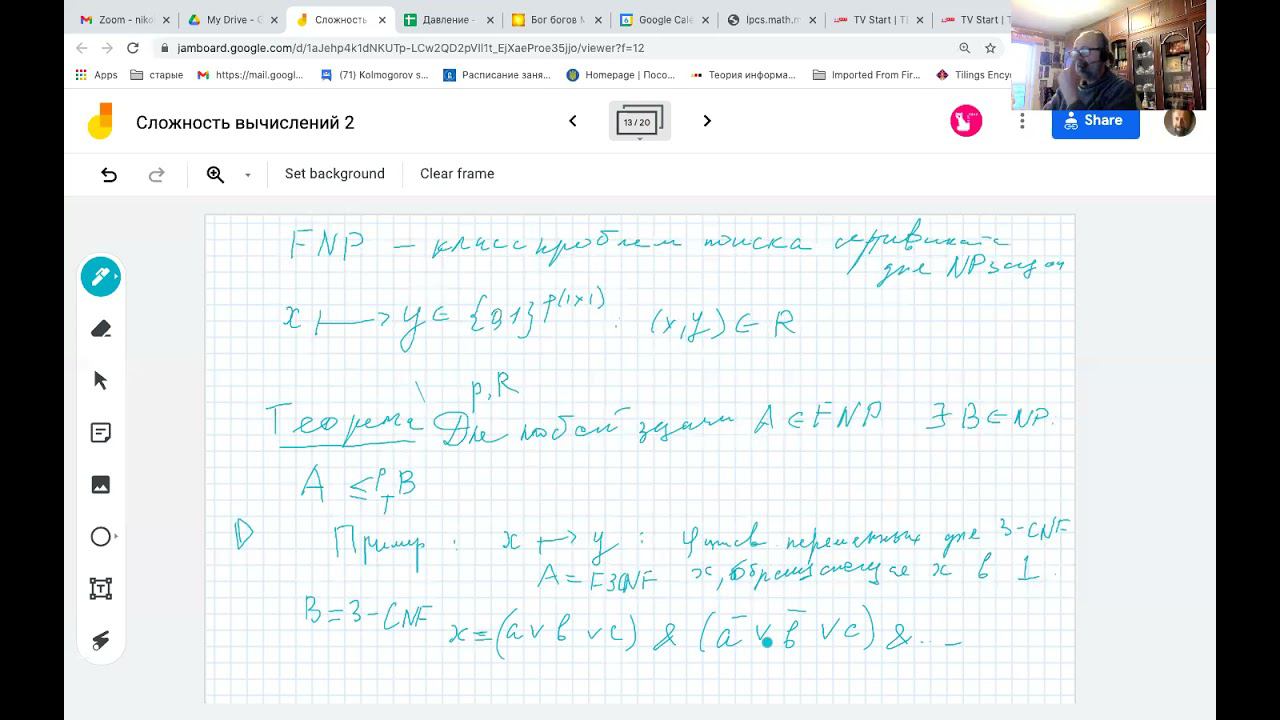 Zoom - niko
My Drive - G
Сложность
Давление -
Бог богов М
Google Cale
lpcs.math.m
TV Start | Ti
TV Start | T
jamboard.google.com/d/1aJehp4k1dNKUTp-LCw2QD2pVIl1t_EjXaeProe35jjo/viewer?f=12
Apps
старые
https://mail.googl...
(71) Kolmogorov s...
Расписание заня...
Homepage | Посо...
Теория информа...
Imported From Fir...
Tilings Ency
Сложность вычислений 2
13 / 20
Share
Set background
Clear frame
FNP – класс проблем поиска сертификата
для NP задач
x ↦ y ∈ {0,1}^p(|x|) : (x,y) ∈ R
p, R
Теорема Для любой задачи A ∈ FNP ∃ B ∈ NP.
A ≤^p_T B
▷ Пример: x ↦ y : переменных для 3-CNF
A = F3CNF x, обращающее x в 1
B = 3-CNF
x = (a ∨ b ∨ c) & (a̅ ∨ b̅ ∨ c) & ...